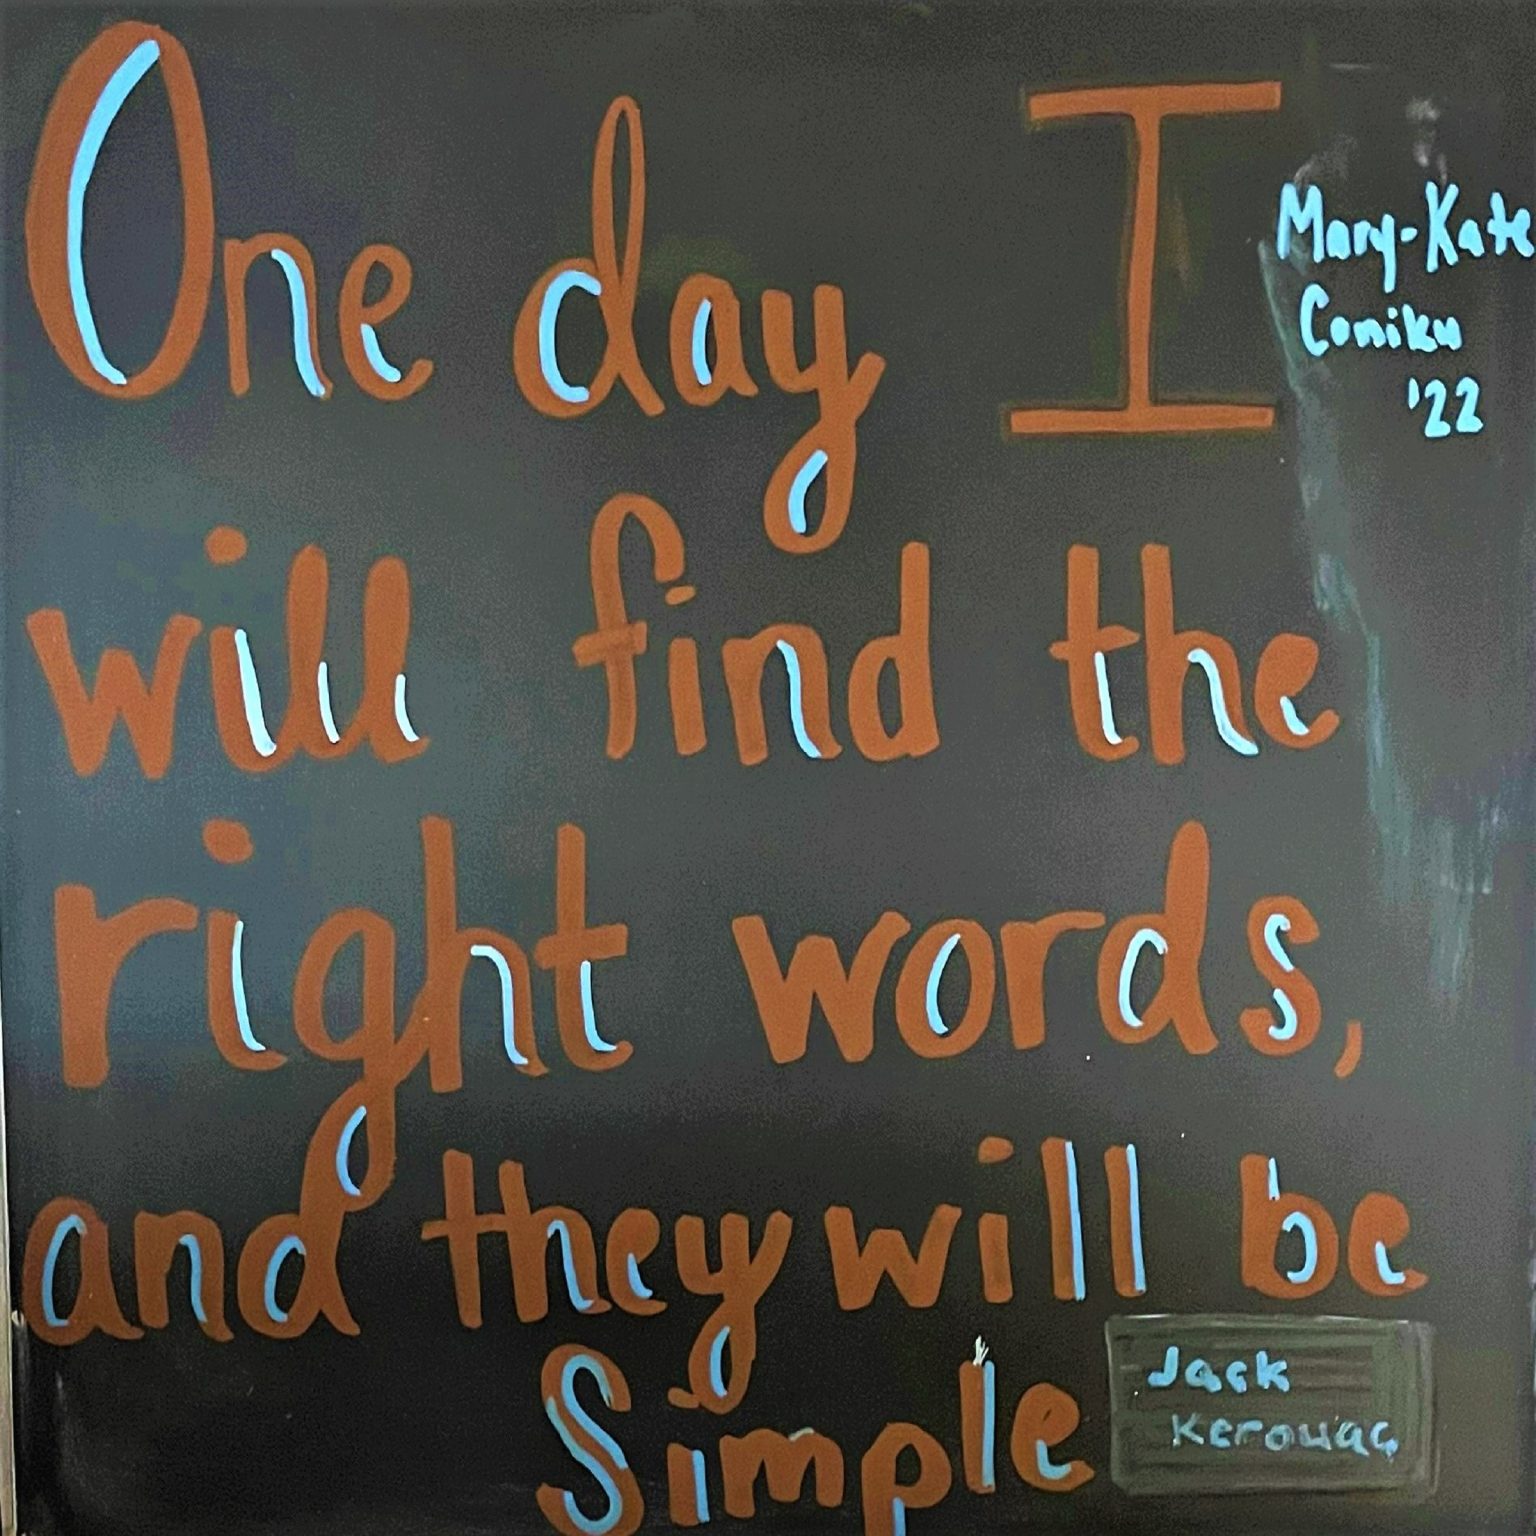 One day I
Mary-Kate
Coniku
'22
will find the
right words,
and they will be
Simple
Jack
Kerouac